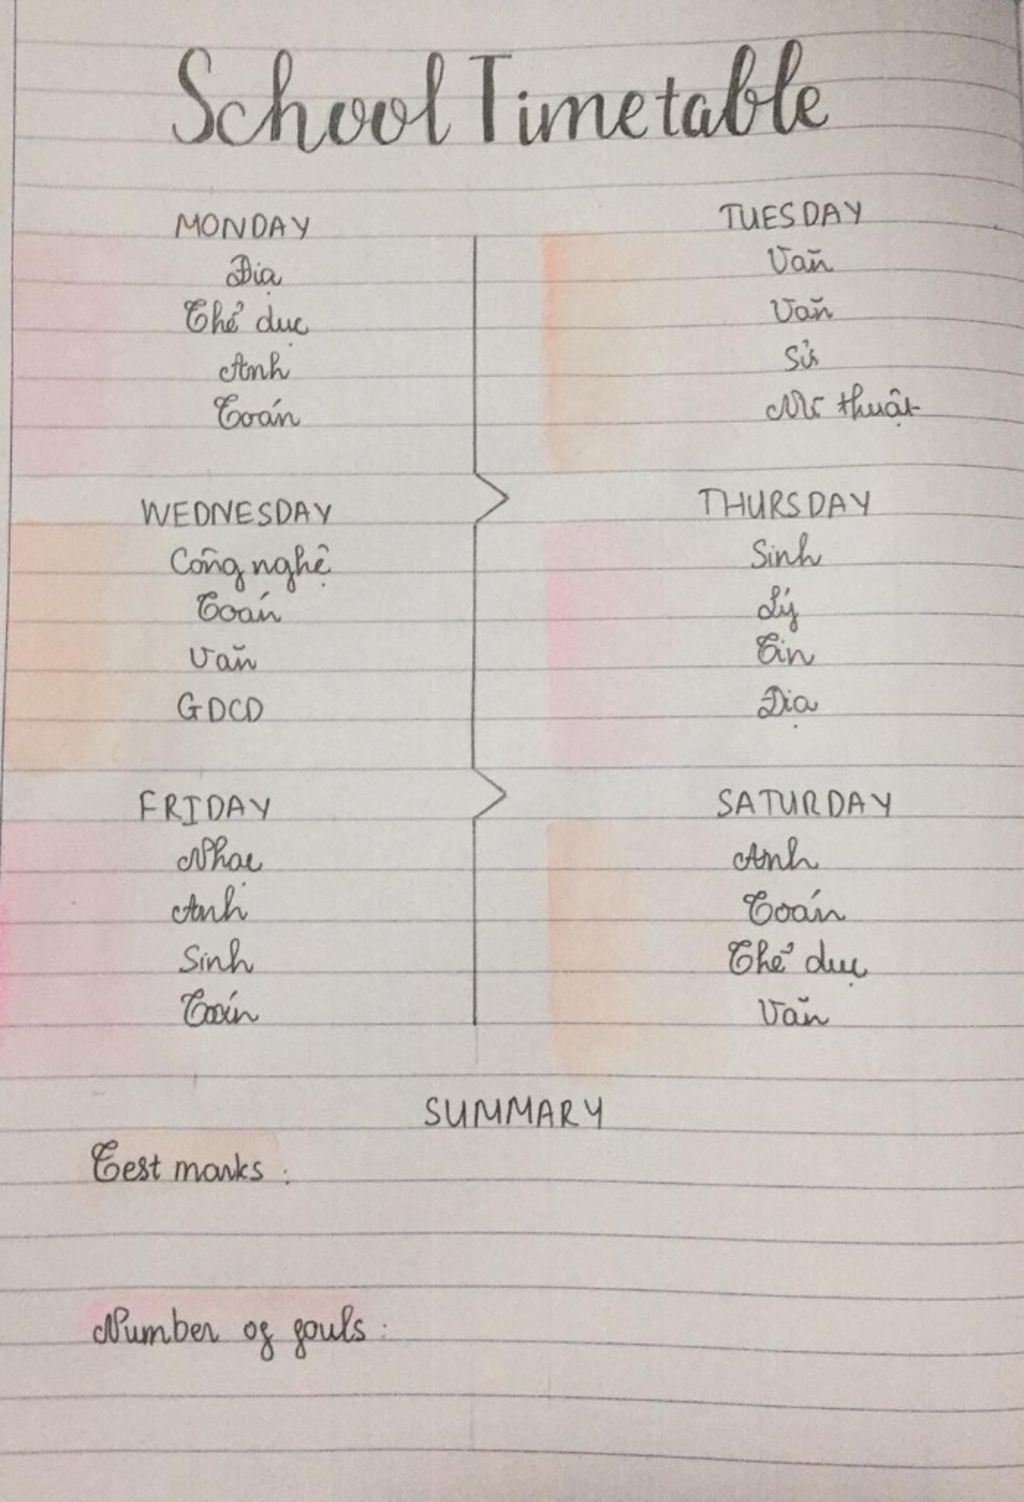 School Timetable
MONDAY
Địa
Thể dục
Anh
Toán
TUESDAY
Văn
Văn
Sử
Mĩ thuật
WEDNESDAY
Công nghệ
Toán
Văn
GDCD
THURSDAY
Sinh
Lý
Tin
Địa
FRIDAY
Nhạc
Anh
Sinh
Toán
SATURDAY
Anh
Toán
Thể dục
Văn
SUMMARY
Test marks :
Number of fouls :